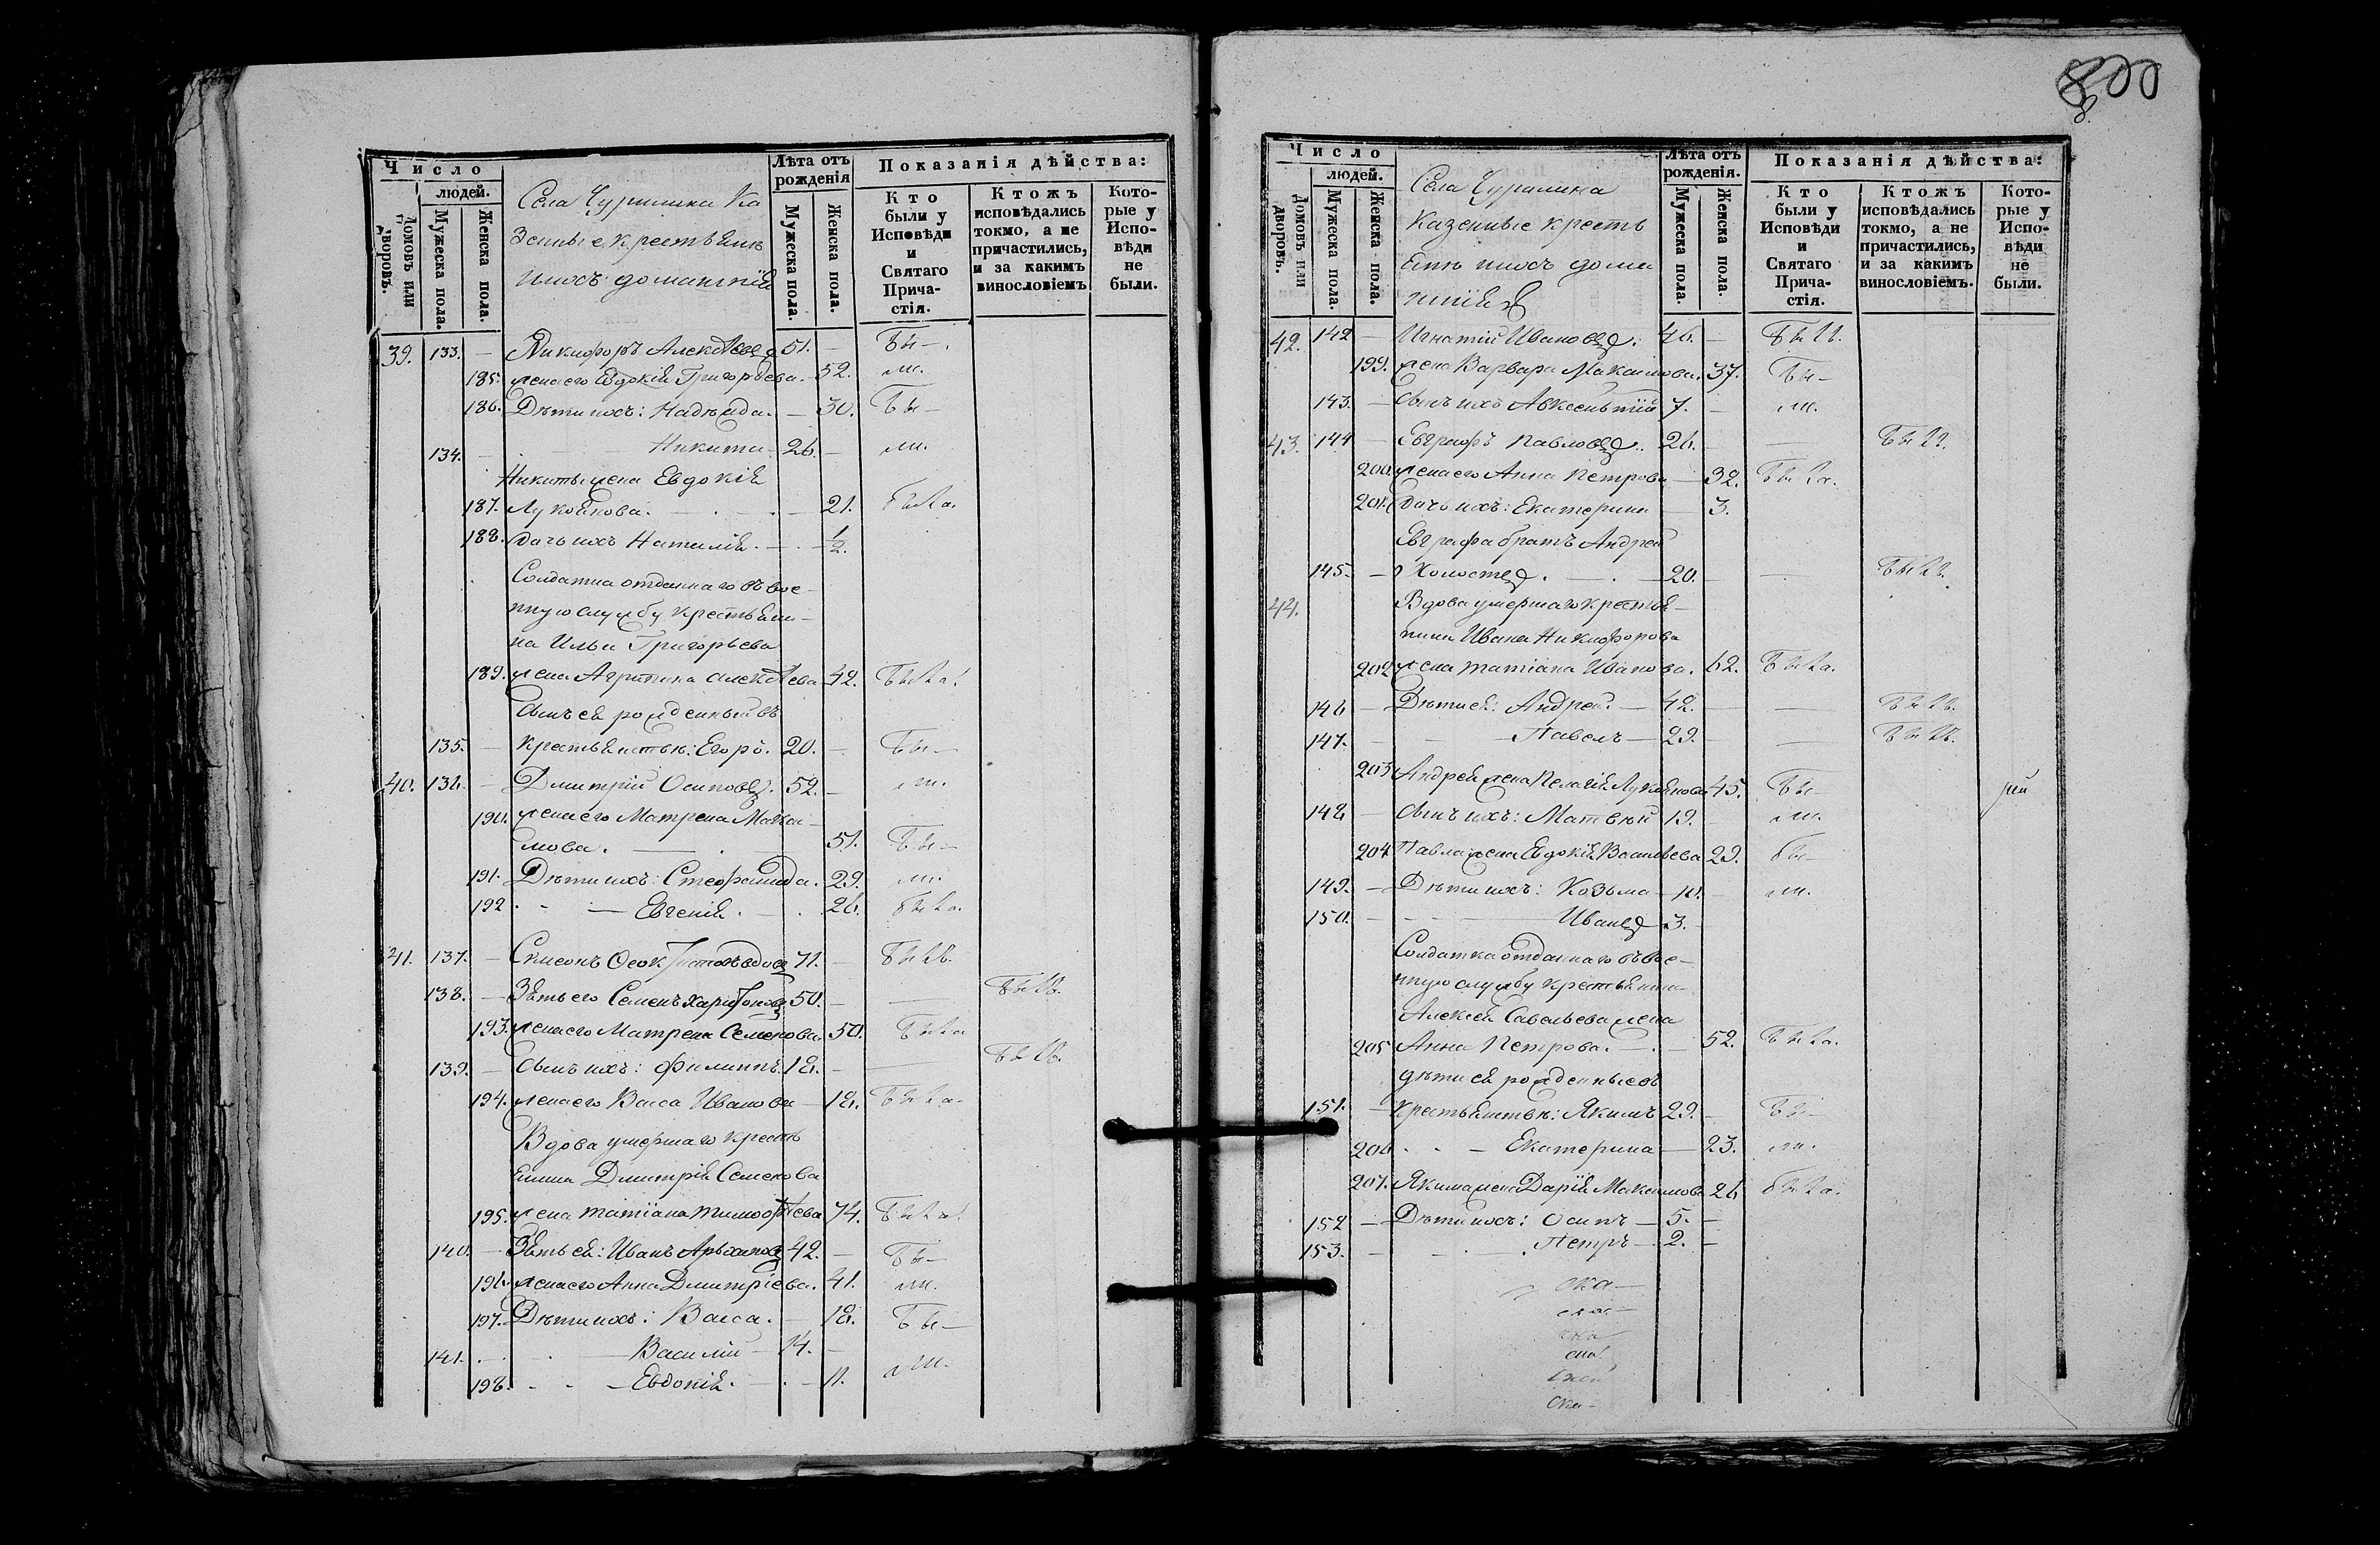 800
Число
людей.
Домовъ или дворовъ.
Мужеска пола.
Женска пола.
Села Чурилина Ка
зенные крестьяне
и ихъ домашнія
Лѣта отъ рожденія
Мужеска пола.
Женска пола.
Показанія дѣйства:
Кто были у Исповѣди и Святаго Причастія.
Ктожъ исповѣдались токмо, а не причастились, и за какимъ винословіемъ
Которые у Исповѣди не были.
39. 133. — Никифоръ Алексѣевъ 51. — бы—
185. жена его Евдокія Григорьева. — 52. ли.
186. Дѣти ихъ: Надежда. — 30. Бы—
134. — Никита — 26. — ли.
Никиты жена Евдокія
187. Лукоянова. — 21. была.
188. дочь ихъ Наталія. — 1/2.
Солдатка отданнаго въ вое-
нную службу крестьяни-
на Ильи Григорьева
189. жена Агрипина Алексѣева 42. Была.
Сынъ ея рожденный въ
135. — крестьянствѣ: Егоръ. 20. — Бы—
40. 136. — Дмитрій Осиповъ. 52. — ли.
190. жена его Матрена Макси-
мова. — 51. Бы—
191. Дѣти ихъ: Стефанида. 29. ли.
192. — Евгенія. — 26. была.
41. 137. — Симеонъ Ѳеоктистовъ вдовъ 71. — Былъ.
138. — Зять его Семенъ Харитоновъ 50. — Былъ.
193. жена его Матрена Семенова. 50. Была
139. — Сынъ ихъ: Филиппъ. 18. — Былъ.
194. жена его Васса Иванова — 18. Была.
Вдова умершаго кресть
янина Дмитрія Семенова
195. жена Татіана Тимоѳѣева 74. Была.
140. — Зять ея: Иванъ Архиповъ 42. — Бы—
196. жена его Анна Дмитріева. 41. ли.
197. Дѣти ихъ: Васса. — 18. Бы—
141. — Василій — 14. — ли.
198. — Евдокія. — 11.
Число
людей.
Домовъ или дворовъ.
Мужеска пола.
Женска пола.
Села Чурилина
Казенные кресть
яне и ихъ дома
шнія
Лѣта отъ рожденія.
Мужеска пола.
Женска пола.
Показанія дѣйства:
Кто были у Исповѣди и Святаго Причастія.
Ктожъ исповѣдались токмо, а не причастились, и за какимъ винословіемъ.
Которые у Исповѣди не были.
42. 142 — Игнатій Ивановъ. 46. — Былъ.
199. жена Варвара Максимова. 37. Бы—
143. — Сынъ ихъ Авксентій 7. — ли.
43. 144 — Евграфъ Павловъ. 26. — Былъ.
200. жена его Анна Петрова — 32. Была.
201. дочь ихъ: Екатерина — 3.
Евграфа братъ Андрей
145. — Холостъ. — 20. — Былъ.
44. Вдова умершаго крестья-
нина Ивана Никифорова
202 жена Татіана Иванова. 62. Была.
146 — Дѣти ея: Андрей. — 42. — Былъ.
147. — Павелъ — 29. — Былъ.
203 Андрея жена Пелагія Лукоянова 45. Бы—
148 — Сынъ ихъ: Матвѣй 19. — ли.
204 Павла жена Евдокія Васильева 29. бы—
149. — Дѣти ихъ: Козьма — 10. — ли.
150. — Иванъ 3. —
Солдатка отданнаго въ вое-
нную службу крестьянина
Алексѣя Савельева жена
205 Анна Петрова. — 52. Была.
дѣти ея рожденные въ
151. — крестьянствѣ: Якимъ 29. — Бы—
206 — Екатерина — 23. ли.
207. Якима жена Дарія Максимова 26 была.
152 — Дѣти ихъ: Осипъ — 5. —
153. — Петръ — 2. —